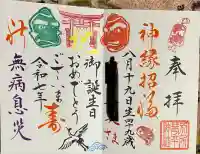 奉拝
神縁招福
八月十九日生四九歳
さま
御誕生日
おめでとう
ございます
寿
令和七年
無病息災